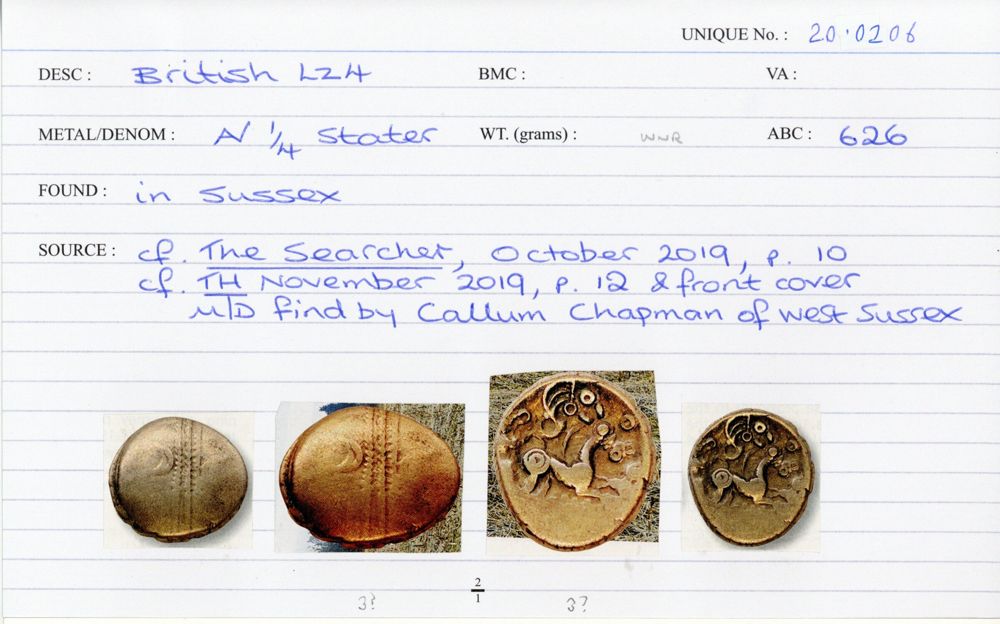 UNIQUE No. : 20.0206
DESC : British LZ4 BMC : VA :
METAL/DENOM : N 1/4 Stater WT. (grams) : WNR ABC : 626
FOUND : in Sussex
SOURCE : cf. The Searcher, October 2019, p. 10
cf. TH November 2019, p. 12 & front cover
M/D find by Callum Chapman of West Sussex
2
1
3? 3?